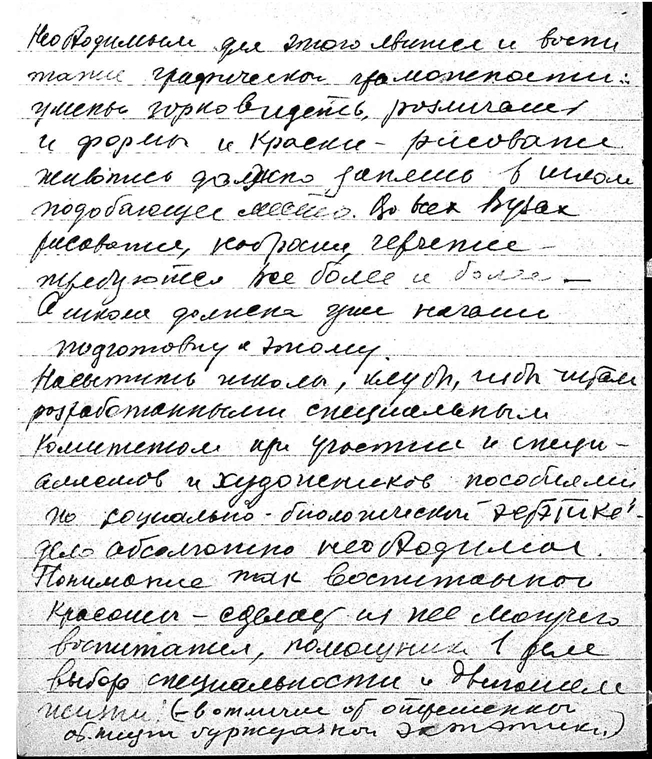 Необходимым для этого явится и воспи
тание графической грамотности:
уменье зорко видеть, различать
и формы и краски – рисование
живопись должно занять в школе
подобающее место. Во всех Вузах
рисование, наброски, черчение –
требуются все более и более –
А школа должна уже начать
подготовку к этому.
Насытить школы, клубы, избы-читал
разработанными специальным
Комитетом при участии и специ-
алистов и художников пособиями
по социально-биологической эстэтике –
дело абсолютно необходимое.
Понимание так воспитанной
красоты – сделает из нее могучего
воспитателя, помощника в деле
выбора специальности и двигателем
жизни (– в отличие от отрешенной
от жизни буржуазной эстэтики.)